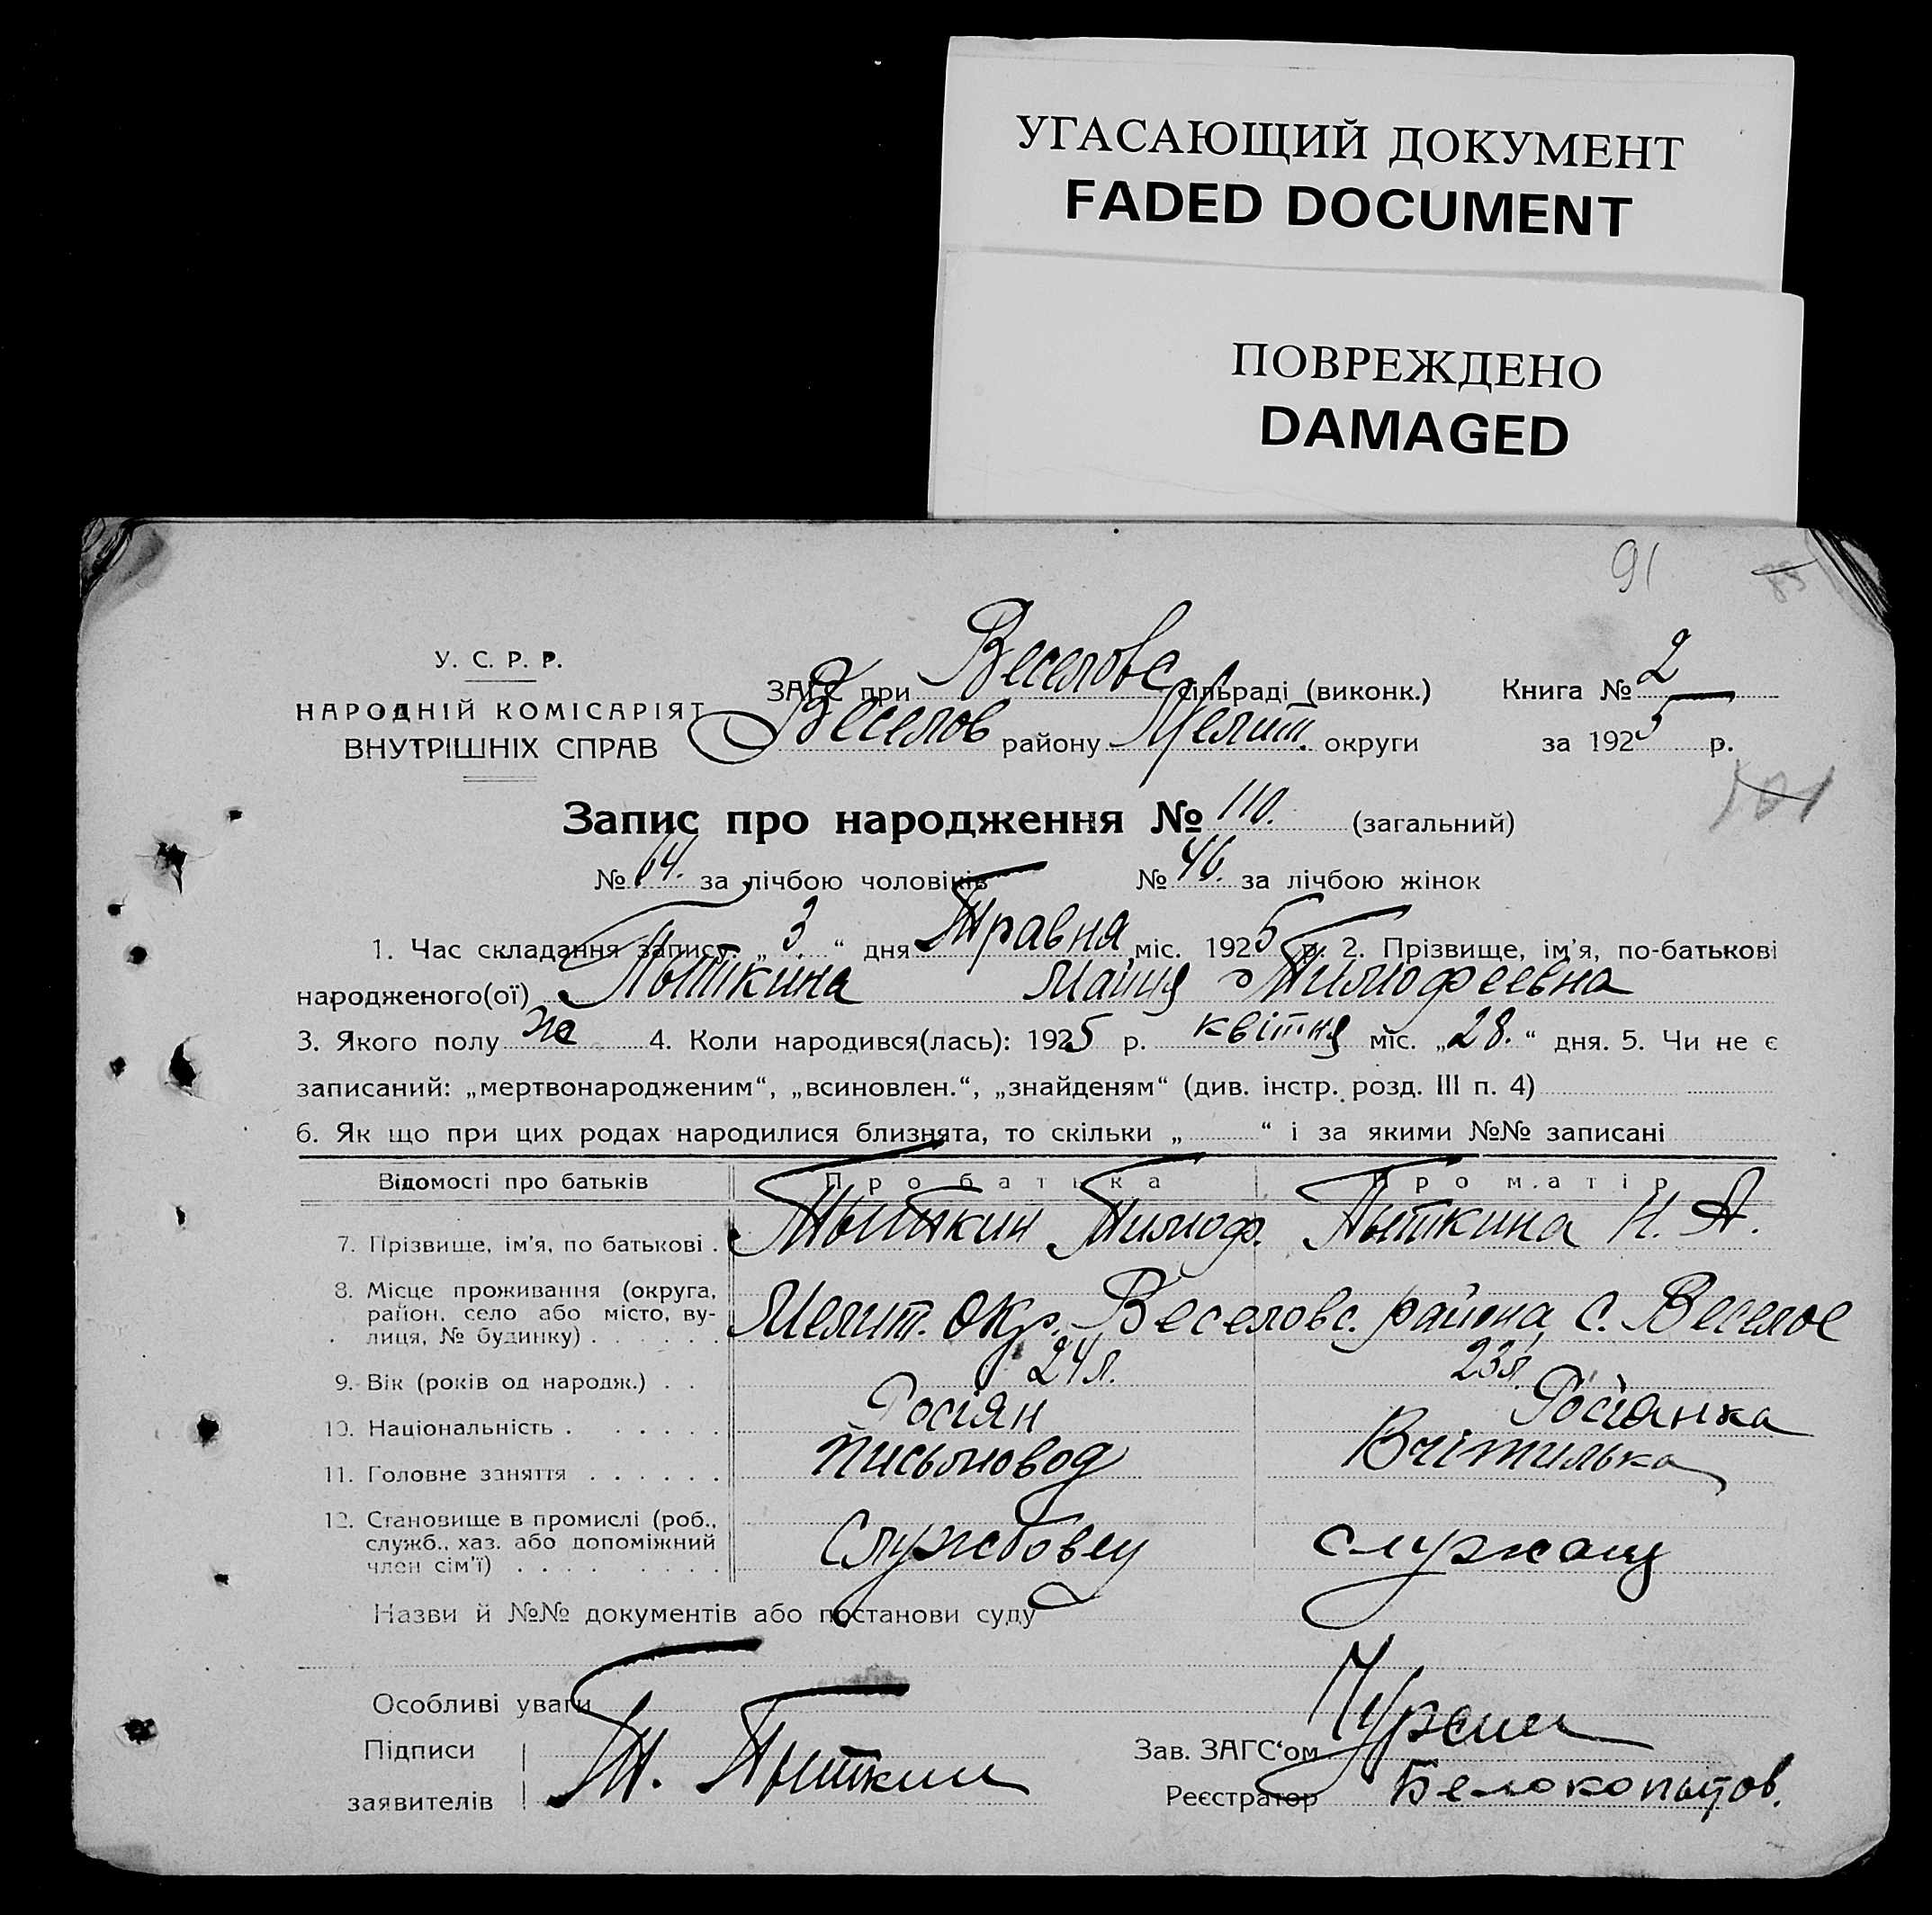 УГАСАЮЩИЙ ДОКУМЕНТ
FADED DOCUMENT
ПОВРЕЖДЕНО
DAMAGED
91
У. С. Р. Р.
НАРОДНІЙ КОМІСАРІЯТ
ВНУТРІШНІХ СПРАВ
ЗАГС при Веселовс сільраді (виконк.) Книга № 2
Веселов району Мелит. округи за 1925 р.
Запис про народження № 110. (загальний)
№ 64. за лічбою чоловіків № 46. за лічбою жінок
1. Час складання запису: „3“ дня Травня міс. 1925 р. 2. Прізвище, ім’я, по-батькові
народженого(ої) Пыткина Майя Тимофеевна
3. Якого полу же 4. Коли народився(лась): 1925 р. квітня міс. „28.“ дня. 5. Чи не є
записаний: „мертвонародженим“, „всиновлен.“, „знайденям“ (див. інстр. розд. III п. 4)
6. Як що при цих родах народилися близнята, то скільки „ “ і за якими №№ записані
Відомості про батьків Про батька Про матір
7. Прізвище, ім’я, по батькові . Пыткин Тимоф. Пыткина Н. А.
8. Місце проживання (округа,
район, село або місто, ву-
лиця, № будинку) . . . . . . Мелит. окр. Веселовс. района, с. Веселое
9. Вік (років од народж.) . . 24 л. 23 л.
10. Національність . . . . . . Росіян Росіянка
11. Головне заняття . . . . . . Письмовод Вчітилька
12. Становище в промислі (роб.,
служб., хаз. або допоміжний
член сім’ї) . . . . . . . . Службовец служащ
Назви й №№ документів або постанови суду
Особливі уваги
Підписи
заявителів Т. Пыткин
Зав. ЗАГС‘ом
Реєстратор Белокопытов.